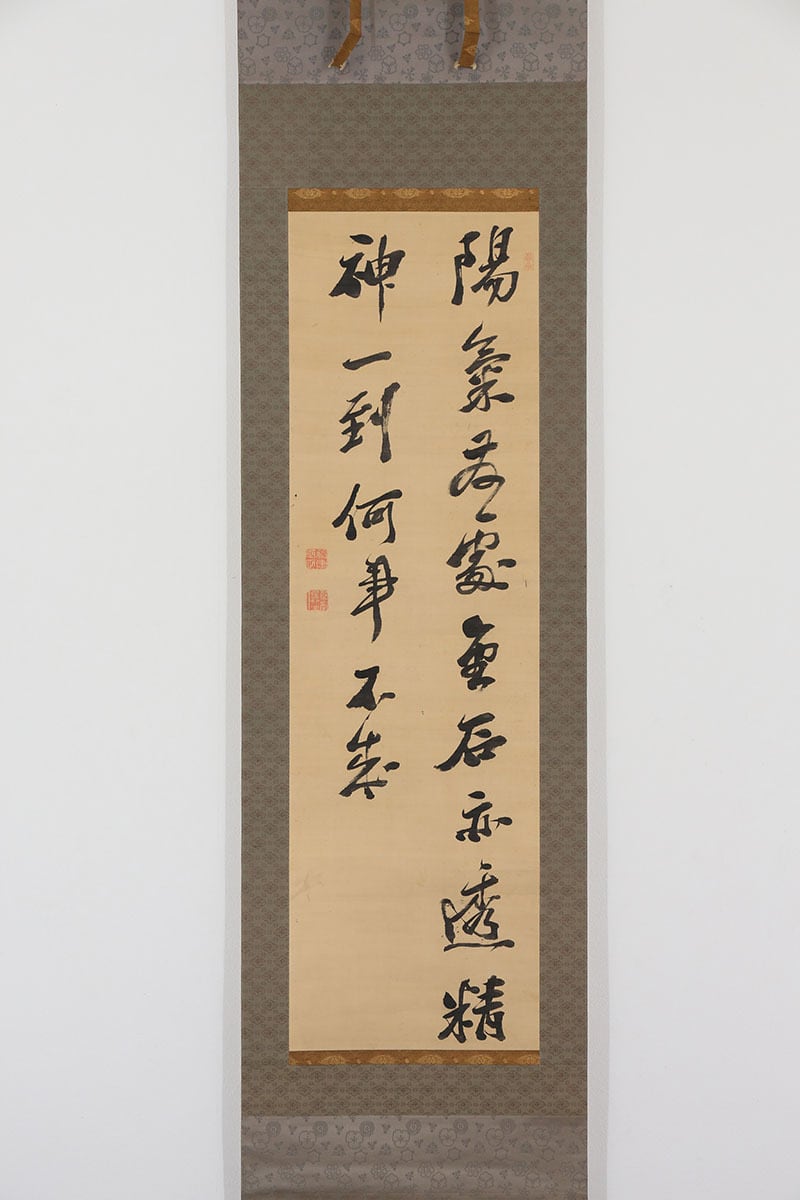 陽氣發處金石亦透精
神一到何事不成